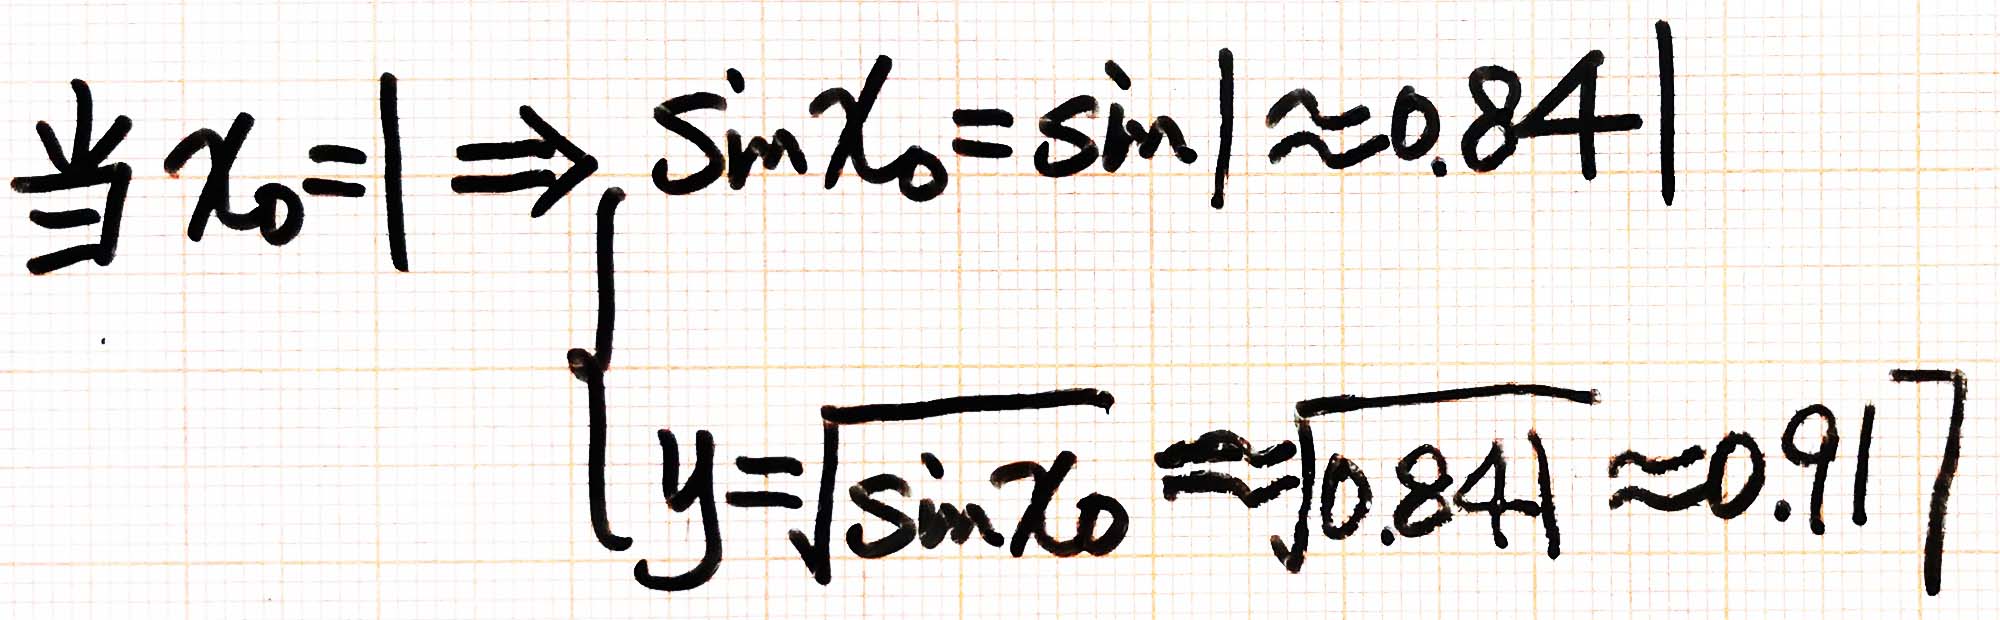 当 x₀=1 ⇒ { sin x₀ = sin 1 ≈ 0.841
y = √(sin x₀) ≈ √(0.841) ≈ 0.917